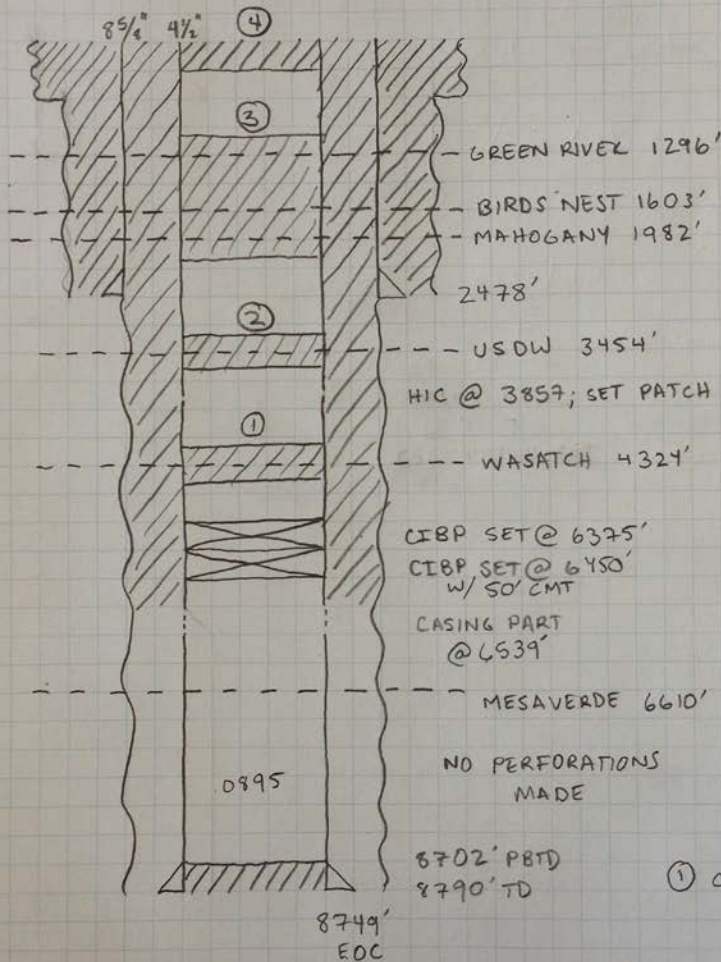 8 5/8" 4 1/2" ④
③
GREEN RIVER 1296'
BIRDS NEST 1603'
MAHOGANY 1982'
2478'
②
USDW 3454'
HIC @ 3857; SET PATCH
①
WASATCH 4324'
CIBP SET @ 6375'
CIBP SET @ 6450'
W/ 50' CMT
CASING PART
@ 6539'
MESAVERDE 6610'
NO PERFORATIONS
MADE
.0895
8702' PBTD
8790' TD
① C
8749'
EOC